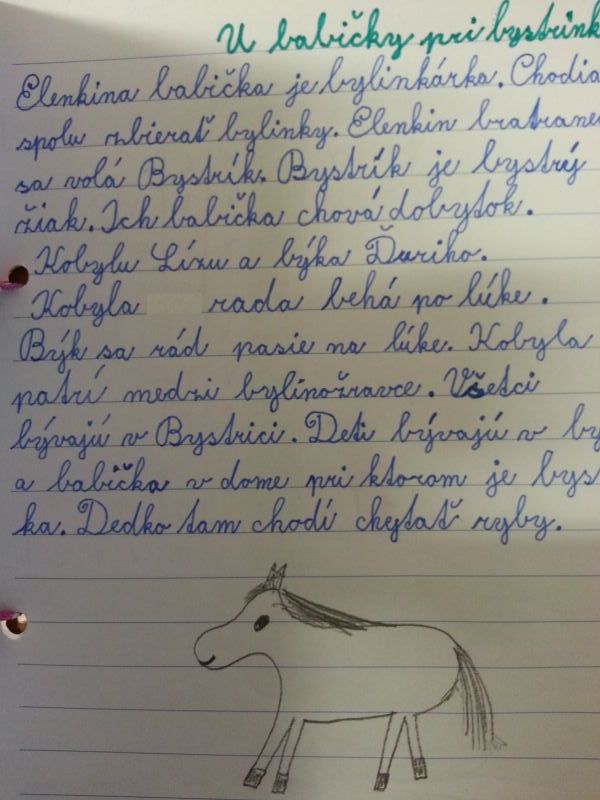 U babičky pri bystrink
Elenkina babička je bylinkárka. Chodia
spolu zbierať bylinky. Elenkin bratranec
sa volá Bystrík. Bystrík je bystrý
žiak. Ich babička chová dobytok.
Kobylu Lízu a býka Ďuriho.
Kobyla rada behá po lúke.
Býk sa rád pasie na lúke. Kobyla
patrí medzi bylinožravce. Všetci
bývajú v Bystrici. Deti bývajú v by
a babička v dome pri ktorom je bys
ka. Dedko tam chodí chytať ryby.